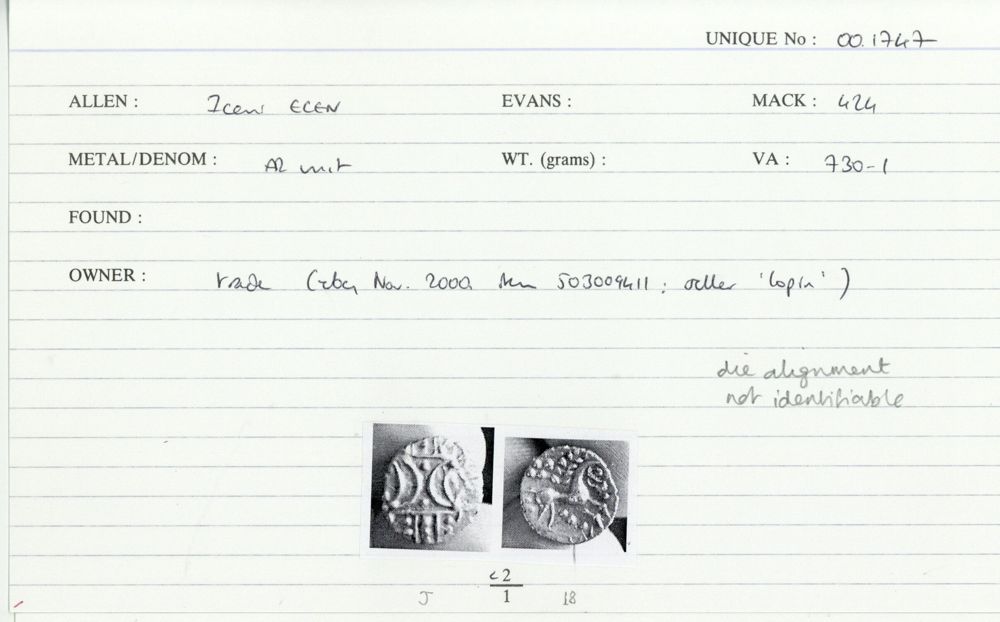 UNIQUE No : 00.1747
ALLEN : Iceni ECEN EVANS : MACK : 424
METAL/DENOM : AR unit WT. (grams) : VA : 730-1
FOUND :
OWNER : trade (ebay Nov. 2000 item 503009411 : seller 'lopin')
die alignment
not identifiable
c2
J 1 18